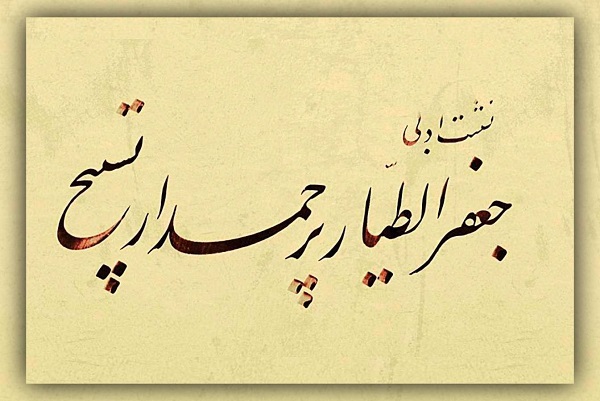 نشست ادبی
جعفر الطیّار پرچمدار تسبیح